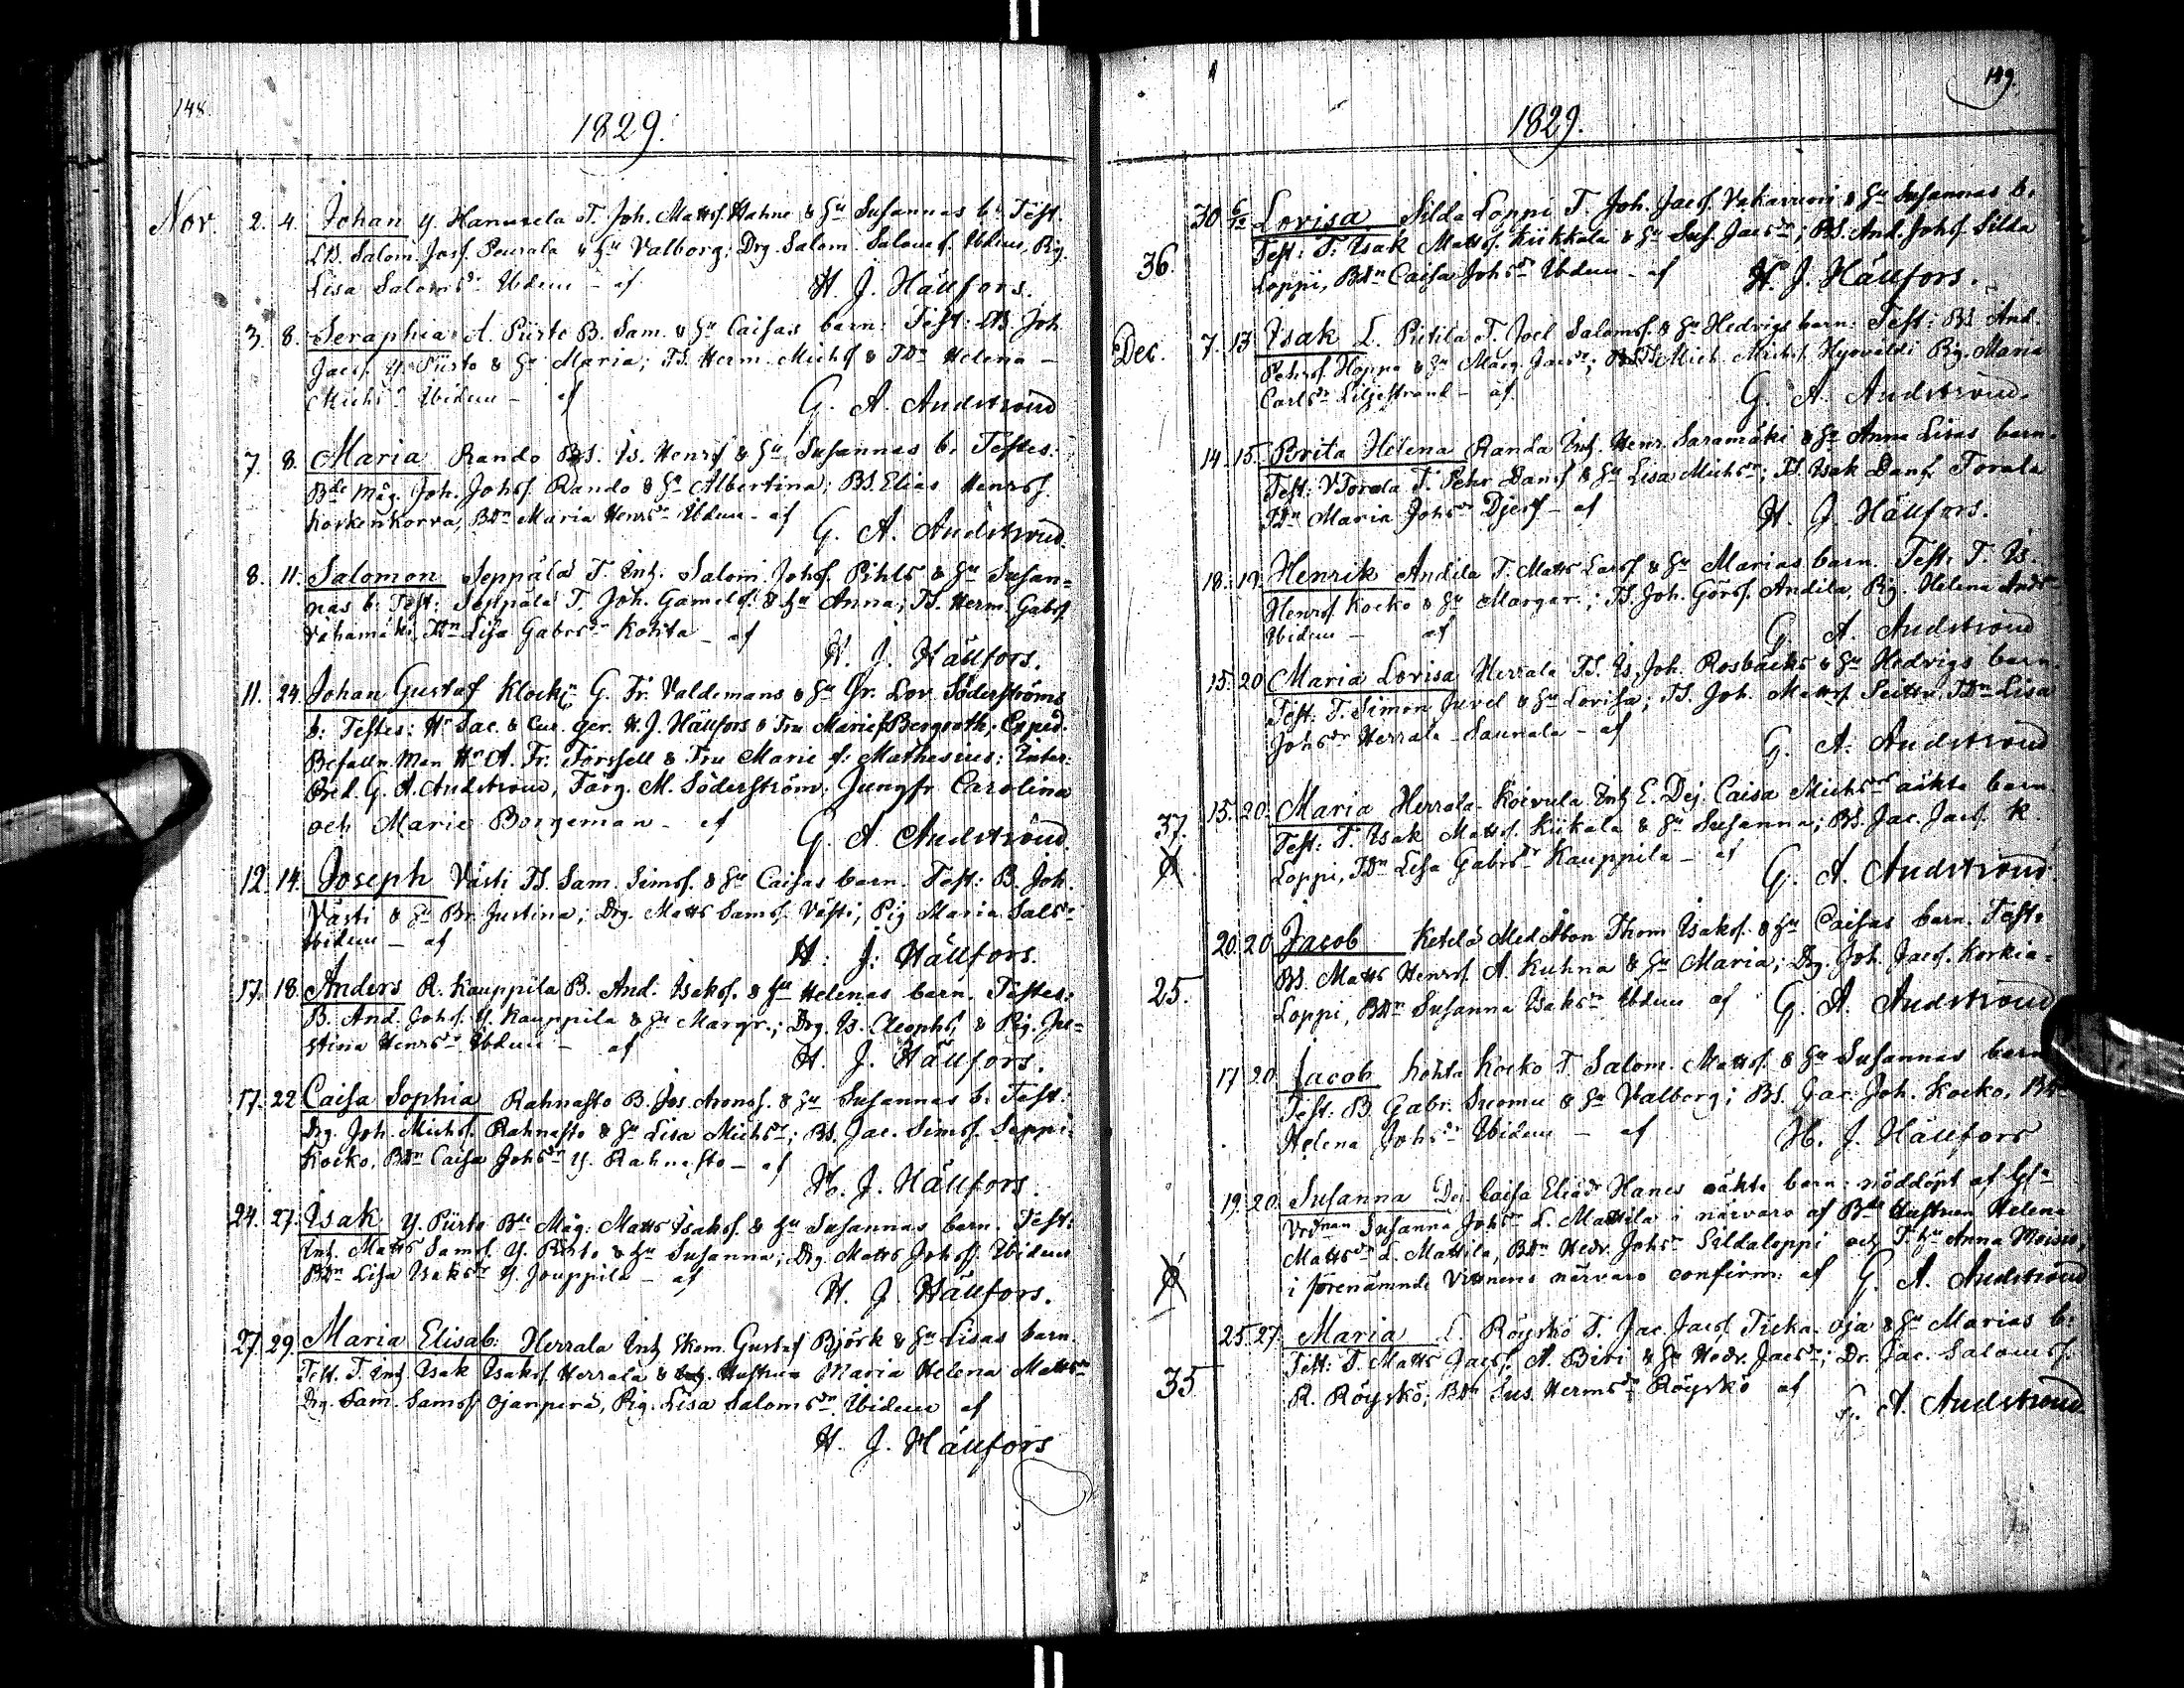 148.
1829.
Nov. 2. 4. Johan Y. Hanuxela T. Joh. Matts. Hahne & hu Susannas b. Test.
LB. Salom. Josf. Peurala & hu Valborg; Drg. Salom. Salomsf. Ibdem, Pig.
Lisa Salomsdr Ibdem - af H. J. Hällfors.
3. 8. Seraphia A. Piirto B. Sam. & hu Caisas barn. Test: LB. Joh.
Jacsf. Y. Piirto & hu Maria; TS. Herm. Michsf & TDn Helena -
Michsdr Ibidem - af G. A. Andström
7. 8. Maria Rando BS. Is. Henrsf & hu Susannas b. Testes:
Bde Måg. Joh. Johsf. Rando & hu Albertina; BS. Elias Henrsf.
Korkenkorva, BDn Maria Henrsdr Ibdem - af G. A. Andström.
8. 11. Salomon Seppälä T. Inh. Salom. Johsf. Pihls & hu Susan=
nas b. Test: Seppälä T. Joh. Gamelsf. & hu Anna; TS. Herm. Gabrsf
Vähamäki, TDn Lisa Gabrsdr Kohta - af
H. J. Hällfors.
11. 24. Johan Gustaf Klock. G. Fr. Valdemans & hu Gr. Lov. Söderströms
b. Testes: Hr Sac. & Cur. ger. H. J. Hällfors & Fru Marie f. Bergroth; Exped.
Befalln. Man Hr A. Fr. Forssell & Fru Marie f. Mathesius; Inter.
Pred. G. A. Andström, Färg. M. Söderström, Jungfr. Carolina
och Marie Borgeman - af G. A. Andström.
12. 14. Joseph Västi TS. Sam. Simsf. & hu Caisas barn. Test: B. Joh.
Västi & hu Br. Justina; Drg. Matts Samsf. Västi, Pig. Maria Salsdr
Ibidem - af H. J. Hällfors.
17. 18. Anders R. Kauppila B. And. Isaksf. & hu Helenas barn. Testes:
B. And. Johsf. Y. Kauppila & hu Margr.; Drg. Is. Cleophsf & Pig. Ju=
stina Henrsdr Ibdem - af H. J. Hällfors.
17. 22. Caisa Sophia Rahnasto B. Jos. Aronsf. & hu Susannas b. Test:
Drg. Joh. Michsf. Rahnasto & hu Lisa Michsdr; BS. Jac. Simsf. Seppi=
Kocko, BDn Caisa Johsdr Y. Rahnasto - af
H. J. Hällfors.
24. 27. Isak Y. Piirto Bde Måg. Matts Isaksf. & hu Susannas barn. Test:
Inh. Matts Samsf. Y. Piirto & hu Susanna; Drg. Matts Johsf. Ibidem
BDn Lisa Isaksdr Y. Jouppila - af
H. J. Hällfors.
27. 29. Maria Elisab. Herrala Inh. Skom. Gustaf Björk & hu Lisas barn.
Test. T. Inh. Isak Isaksf. Herrala & Hustrun Maria Helena Mattsdr
Drg. Sam. Samsf. Ojanperä, Pig. Lisa Salomsdr Ibidem af
H. J. Hällfors
149.
1829.
30 6/12 Lovisa Silda Loppi T. Joh. Jacsf. Vakavuori & hu Susannas b.
36. Test: T. Isak Mattsf. Kiikkala & hu Sus. Jacsdr; BS. And. Johsf. Silda
Loppi, BDn Caisa Johsdr Ibdem - af H. J. Hällfors.
Dec. 7. 13. Isak L. Pietilä T. Joel Salomsf. & hu Hedvigs barn. Test: BS. And.
Pehrsf. Hoppa & hu Marg. Jacsdr; TS. Mich. Michsf. Hyöväldi Pig. Maria
Carlsdr Liljestrand - af G. A. Andström.
14. 15. Brita Helena Randa Inh. Henr. Saramäki & hu Anna Lisas barn.
Test: YTorala T. Pehr Dansf & hu Lisa Michsdr; TS. Isak Dansf. Torala
TDn Maria Johsdr Djerf - af H. J. Hällfors.
18. 19. Henrik Andila T. Matts Larsf & hu Marias barn. Test: T. Is.
Henrsf. Kocko & hu Margar.; TS. Joh. Görsf. Andila, Pig. Helena Andsdr
Ibidem - af G. A. Andström
15. 20. Maria Lovisa Herrala TS. Is. Joh. Rosbäcks & hu Hedvigs barn.
Test: T. Simon Jurvel & hu Lovisa; TS. Joh. Mattsf. Seittu, TDn Lisa
Johsdr Herrala Saunala - af G. A. Andström
37. 15. 20. Maria Herrala Koivula Inh. E. Dej. Caisa Michsdr oäkta barn
Test: T. Isak Mattsf. Kiikala & hu Susanna; BS. Jac. Jacsf. K.
Loppi, TDn Lisa Gabrsdr Kauppila - af G. A. Andström.
20. 20. Jacob Ketelä Med Åbon Thom. Isaksf. & hu Caisas barn. Test:
25. BS. Matts Henrsf. A. Kuhna & hu Maria; Drg. Joh. Jacsf. Korkia=
Loppi, BDn Susanna Isaksdr Ibdem af G. A. Andström
17. 20. Jacob Kohta Kocko T. Salom. Mattsf. & hu Susannas barn
Test: B. Gabr. Suomu & hu Valborg; BS. Jac. Joh. Kocko, BDn
Helena Johsdr Ibidem - af H. J. Hällfors
19. 20. Susanna Dej. Caisa Eliædr Hanes oäkta barn: nöddöpt af
Susanna Johsdr L. Mattila i närvaro af Bde Hustrun Helena
Mattsdr L. Mattila, BDn Hedv. Johsdr Sildaloppi och T. hu Anna Moisio,
i förenämnde Vittnens närvaro confirm. af G. A. Andström
25. 27. Maria L. Röyskö T. Jac. Jacsf. Ticka-oja & hu Marias b.
35 Test: T. Matts Jacsf. A. Biri & hu Hedv. Jacsdr; Dr. Jac. Salomsf.
R. Röyskö, BDn Sus. Hermsdr Röyskö af G. A. Andström